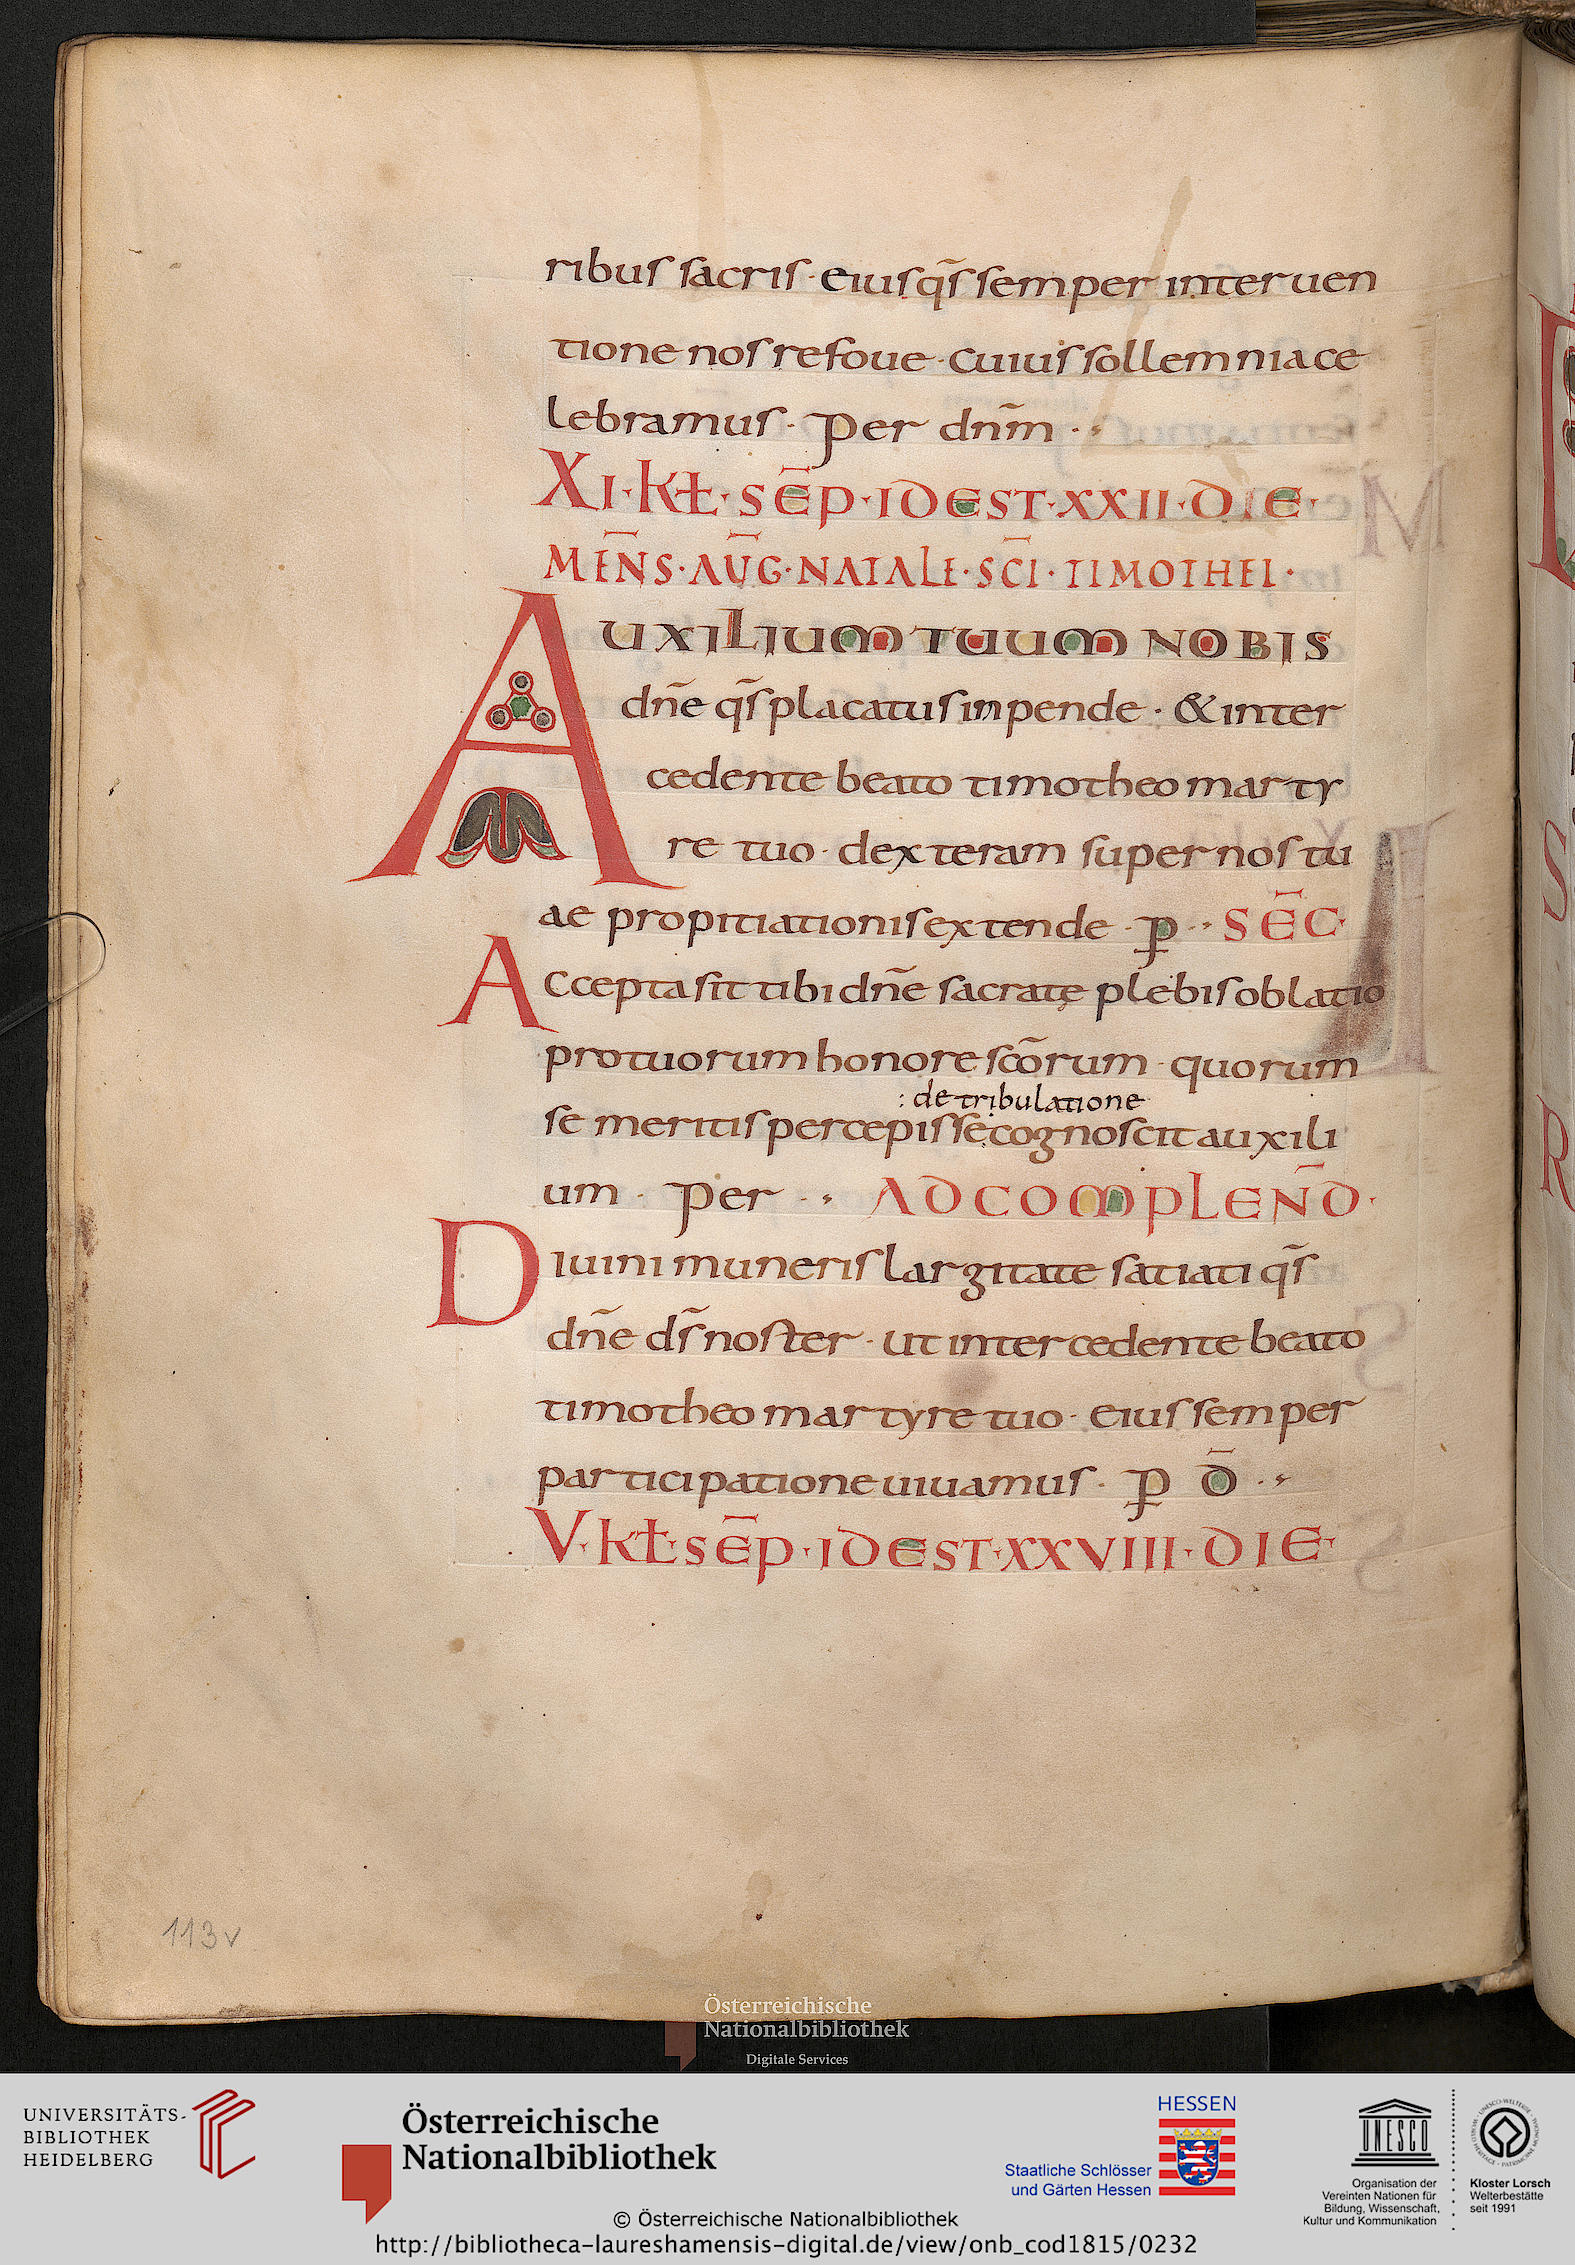 ribus sacris · eius qs̄ semper interuen
tione nos refoue · cuius sollemnia ce
lebramus · Per dnm̄ ··
XI · KƚL · SEP̄ · IDEST · XXII · DIE ·
MEN̄S · AUḠ · NATALE · SCĪ · TIMOTHEI ·
AUXILIUM TUUM NOBIS
dnē qs̄ placatus inpende · & inter
cedente beato timotheo marty
re tuo · dexteram super nos tu
ae propitiationis extende · ꝑ ·· SEC̄ ·
Accepta sit tibi dnē sacratę plebis oblatio
pro tuorum honore scōrum · quorum
: de tribulatione
se meritis percepisse cognoscit auxili
um · Per ·· AD COMPLEND̄ ·
Diuini muneris largitate satiati qs̄
dnē ds̄ noster · ut intercedente beato
timotheo martyre tuo · eius semper
participatione uiuamus · ꝑ D̄ ··
V · KƚL · SEP̄ · IDEST · XXVIII · DIE ·
S
R
113v
Österreichische
Nationalbibliothek
Digitale Services
UNIVERSITÄTS-
BIBLIOTHEK
HEIDELBERG
Österreichische
Nationalbibliothek
HESSEN
Staatliche Schlösser
und Gärten Hessen
UNESCO
Organisation der
Vereinten Nationen für
Bildung, Wissenschaft,
Kultur und Kommunikation
Kloster Lorsch
Welterbestätte
seit 1991
© Österreichische Nationalbibliothek
http://bibliotheca-laureshamensis-digital.de/view/onb_cod1815/0232